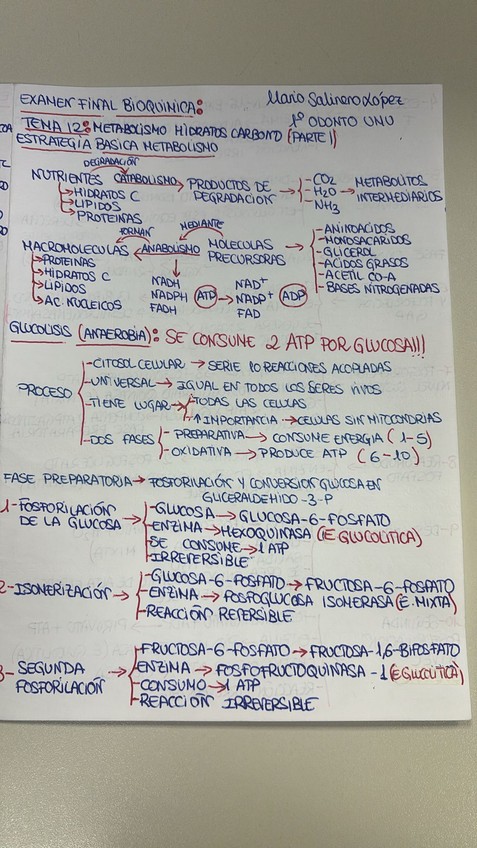 EXAMEN FINAL BIOQUINICA: Mario Salinero López
1º ODONTO UNU
TEMA 12: METABOLISMO HIDRATOS CARBONO (PARTE I)
ESTRATEGIA BASICA METABOLISMO
DEGRADACIÓN
NUTRIENTES CATABOLISMO → PRODUCTOS DE DEGRADACION → CO2 H2O NH3 → METABOLITOS INTERMEDIARIOS
→ HIDRATOS C
→ LIPIDOS
→ PROTEINAS
FORMAN MEDIANTE
MACROMOLECULAS ← ANABOLISMO MOLECULAS PRECURSORAS →
- AMINOACIDOS
- MONOSACARIDOS
- GLICEROL
- ACIDOS GRASOS
- ACETIL CO-A
- BASES NITROGENADAS
→ PROTEINAS
→ HIDRATOS C
→ LIPIDOS
→ AC. NUCLEICOS
NADH NAD+
NADPH ATP → NADP+ ADP
FADH FAD
GLUCOLISIS (ANAEROBIA): SE CONSUNE 2 ATP POR GLUCOSA!!!
PROCESO
- CITOSOL CELULAR → SERIE 10 REACCIONES ACOPLADAS
- UNIVERSAL → IGUAL EN TODOS LOS SERES VIVOS
- TIENE LUGAR → TODAS LAS CELULAS
↑ IMPORTANCIA → CELULAS SIN MITOCONDRIAS
- DOS FASES - PREPARATIVA → CONSUME ENERGIA (1-5)
- OXIDATIVA → PRODUCE ATP (6-10)
FASE PREPARATORIA → FOSFORILACIÓN Y CONVERSION GLUCOSA EN
GLICERALDEHIDO-3-P
1- FOSFORILACIÓN DE LA GLUCOSA →
- GLUCOSA → GLUCOSA-6-FOSFATO
- ENZIMA → HEXOQUINASA (E GLUCOLITICA)
SE CONSUME → 1 ATP
IRREVERSIBLE
2- ISOMERIZACIÓN →
- GLUCOSA-6-FOSFATO → FRUCTOSA-6-FOSFATO
- ENZIMA → FOSFOGLUCOSA ISOMERASA (E. MIXTA)
- REACCIÓN REFERSIBLE
3- SEGUNDA FOSFORILACIÓN →
FRUCTOSA-6-FOSFATO → FRUCTOSA-1,6-BIFOSFATO
ENZIMA → FOSFOFRUCTOQUINASA-1 (E GLUCOLITICA)
- CONSUMO → 1 ATP
- REACCIÓN IRREVERSIBLE